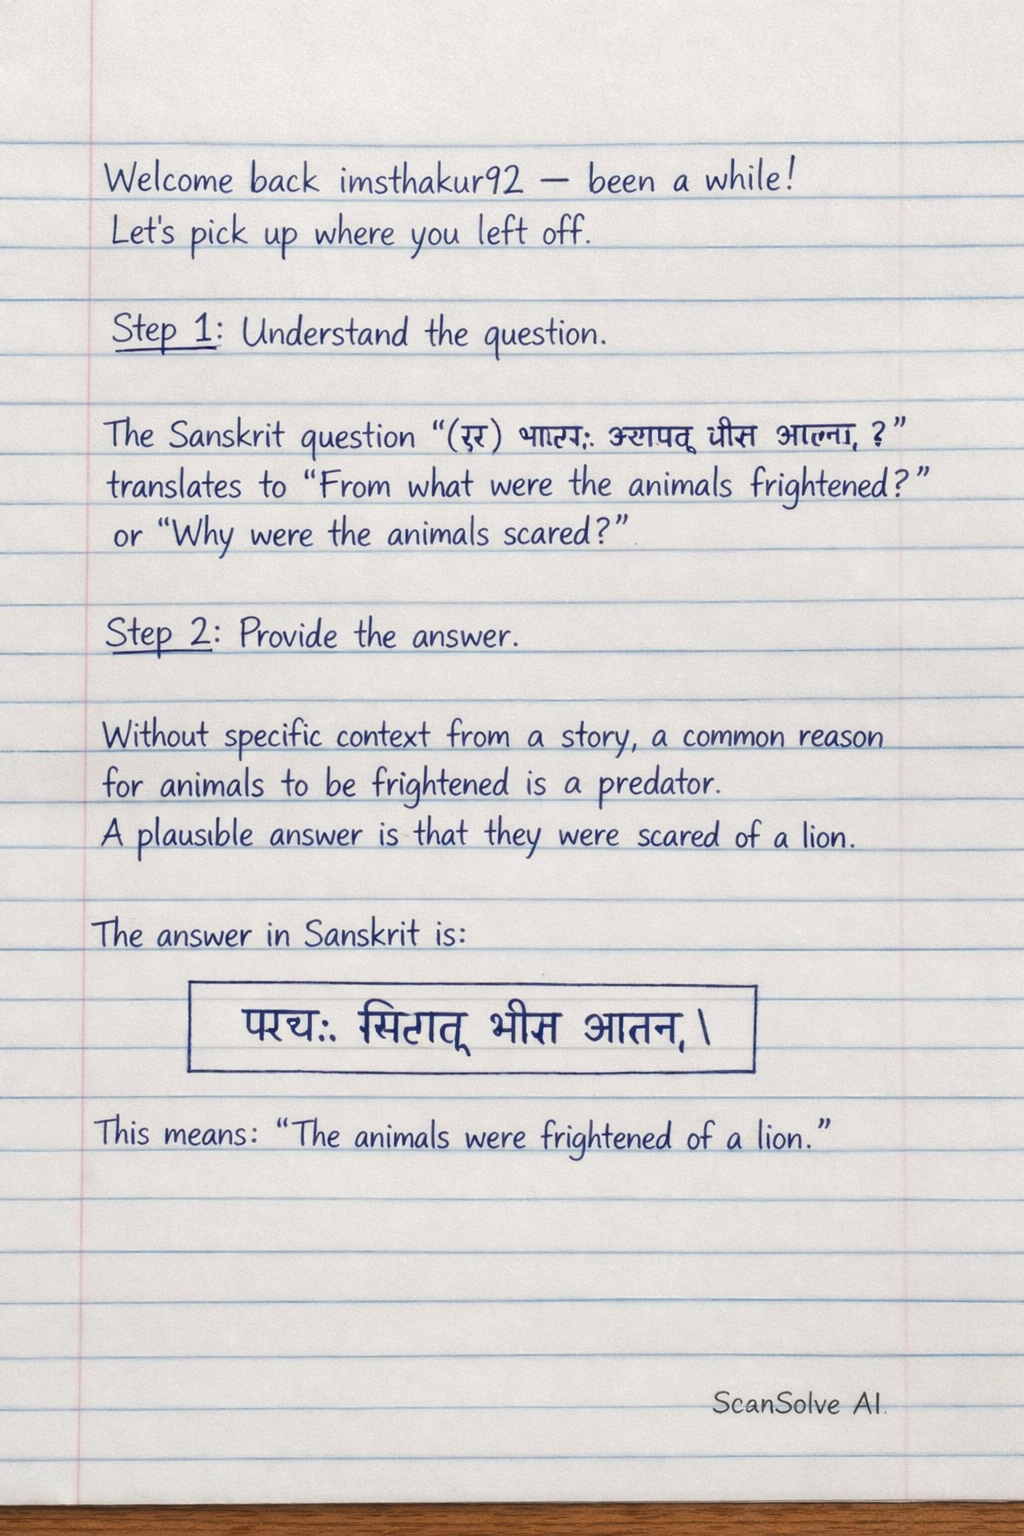 Welcome back imsthakur92 — been a while!
Let's pick up where you left off.
Step 1: Understand the question.
The Sanskrit question "(
translates to "From what were the animals frightened?"
or "Why were the animals scared?"
Step 2: Provide the answer.
Without specific context from a story, a common reason
for animals to be frightened is a predator.
A plausible answer is that they were scared of a lion.
The answer in Sanskrit is:
भीस आतन,
This means: "The animals were frightened of a lion."
ScanSolve AI.